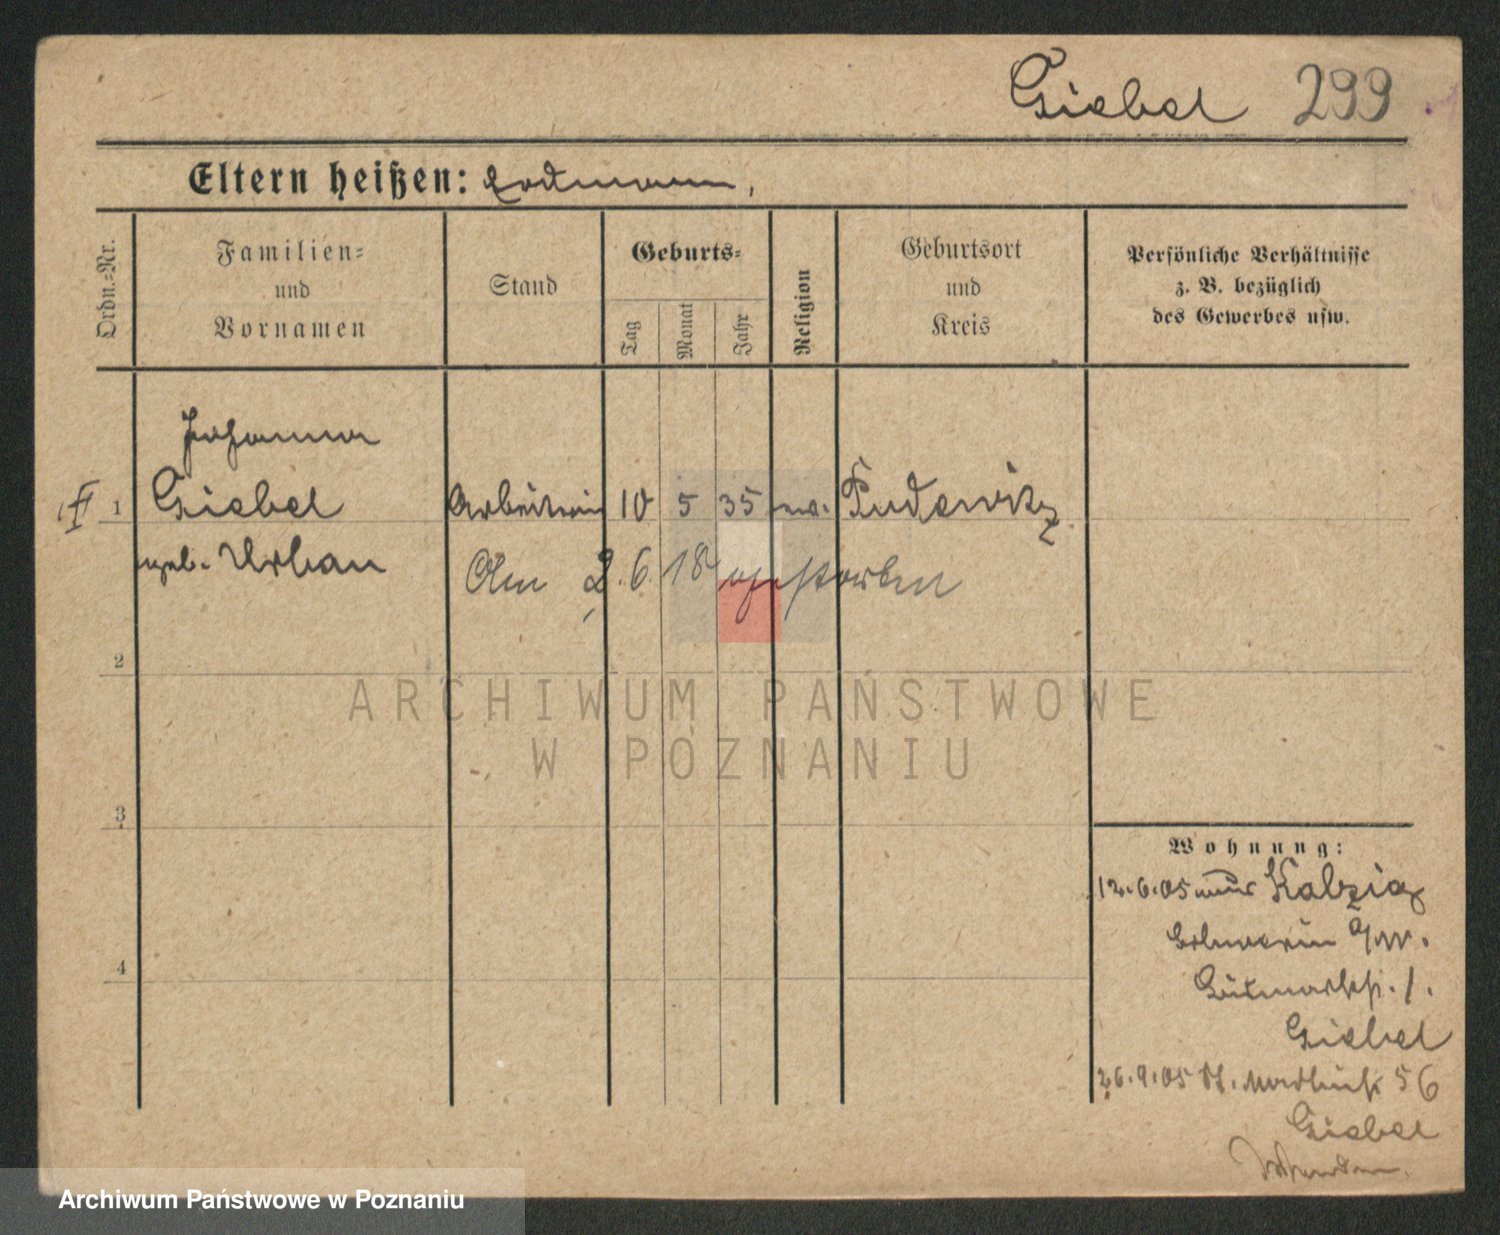 Giebel 299
Eltern heißen: Erdmann,
Ordn.=Nr.
Familien=
und
Vornamen
Stand
Geburts=
Tag
Monat
Jahr
Religion
Geburtsort
und
Kreis
Persönliche Verhältnisse
z. B. bezüglich
des Gewerbes usw.
Johanna
1 Giebel Arbeiterin 10 5 35 ev. Pudewitz
geb. Urban
Am 2.6.18 gestorben
2
ARCHIWUM PAŃSTWOWE
W POZNANIU
3
4
Wohnung:
12.6.05 Kolzig
Schwerin a/W.
1.
Giebel
26.9.05 St. Martinstr 56
Giebel
Archiwum Państwowe w Poznaniu